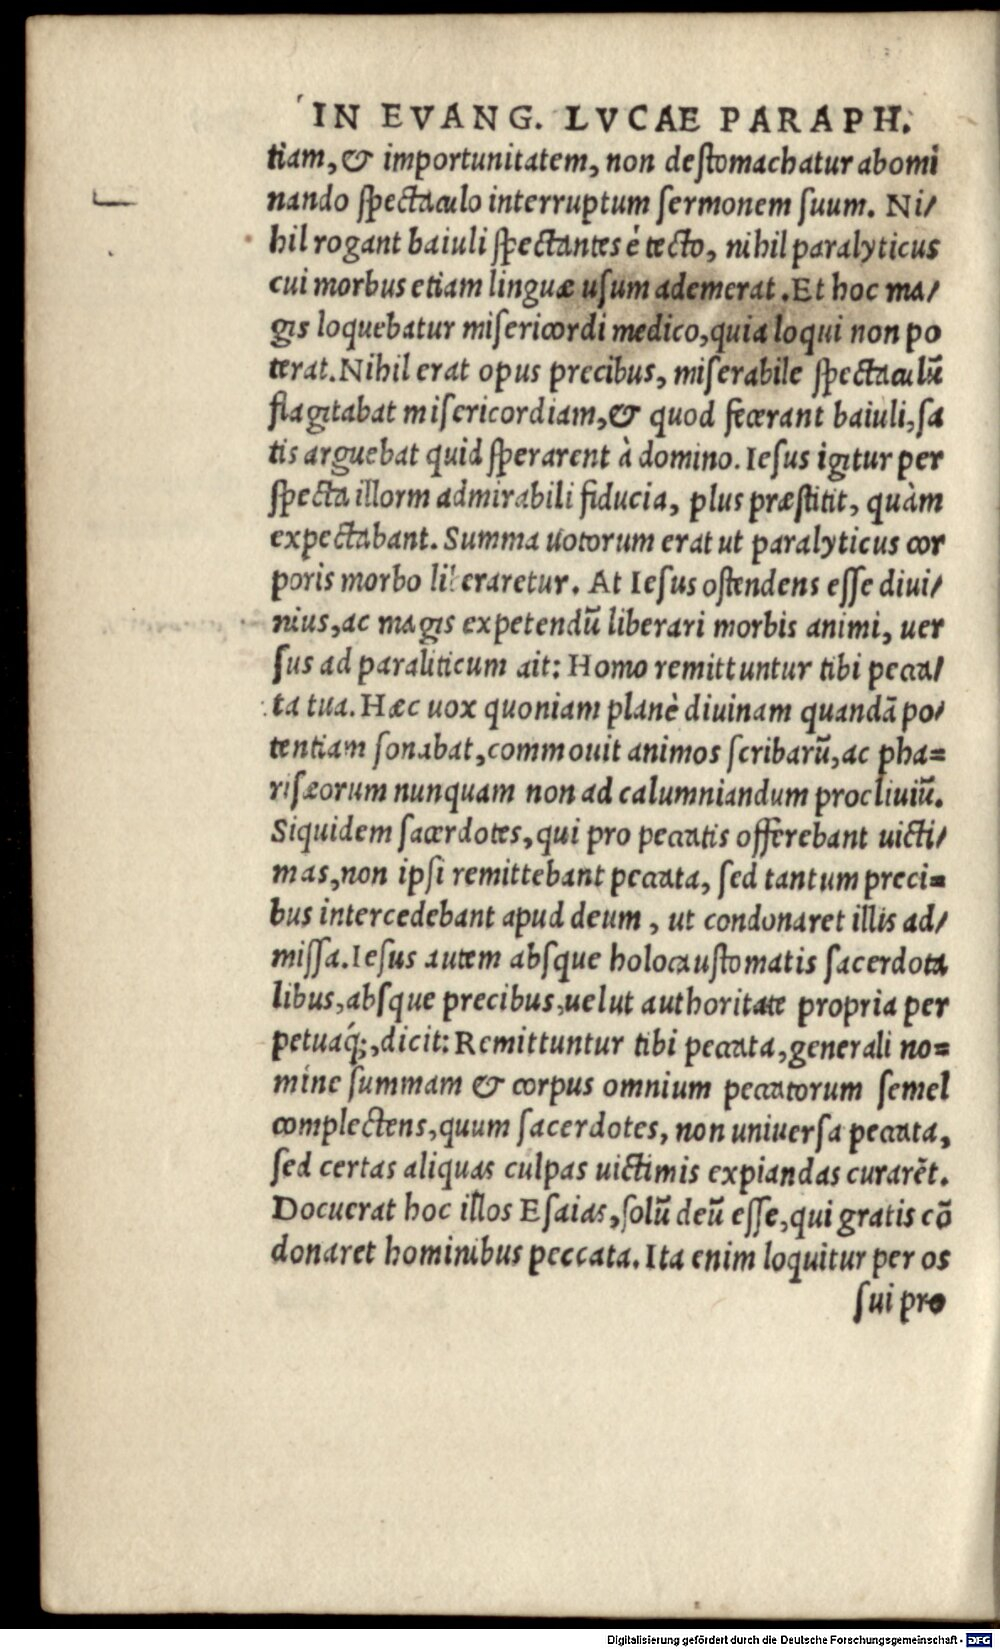 IN EVANG. LVCAE PARAPH.
tiam, & importunitatem, non deſtomachatur abomi
nando ſpectaculo interruptum ſermonem ſuum. Ni/
hil rogant baiuli ſpectantes è tecto, nihil paralyticus
cui morbus etiam linguæ uſum ademerat. Et hoc ma/
gis loquebatur miſericordi medico, quia loqui non po
terat. Nihil erat opus precibus, miſerabile ſpectaculũ
flagitabat miſericordiam, & quod fecerant baiuli, ſa
tis arguebat quid ſperarent à domino. Ieſus igitur per
ſpecta illorm admirabili fiducia, plus præſtitit, quàm
expectabant. Summa uotorum erat ut paralyticus cor
poris morbo liberaretur. At Ieſus oſtendens eſſe diui/
nius, ac magis expetendũ liberari morbis animi, uer
ſus ad paraliticum ait: Homo remittuntur tibi pecca/
ta tua. Hæc uox quoniam planè diuinam quandã po/
tentiam ſonabat, commouit animos ſcribarũ, ac pha=
riſæorum nunquam non ad calumniandum procliuiũ.
Siquidem ſacerdotes, qui pro peccatis offerebant uicti/
mas, non ipſi remittebant peccata, ſed tantum preci=
bus intercedebant apud deum, ut condonaret illis ad/
miſſa. Ieſus autem abſque holocauſtomatis ſacerdota
libus, abſque precibus, uelut authoritate propria per
petuaq́;, dicit: Remittuntur tibi peccata, generali no=
mine ſummam & corpus omnium peccatorum ſemel
complectens, quum ſacerdotes, non uniuerſa peccata,
ſed certas aliquas culpas uictimis expiandas curarẽt.
Docuerat hoc illos Eſaias, ſolũ deũ eſſe, qui gratis cõ
donaret hominibus peccata. Ita enim loquitur per os
ſui pro
Digitalisierung gefördert durch die Deutsche Forschungsgemeinschaft - DFG